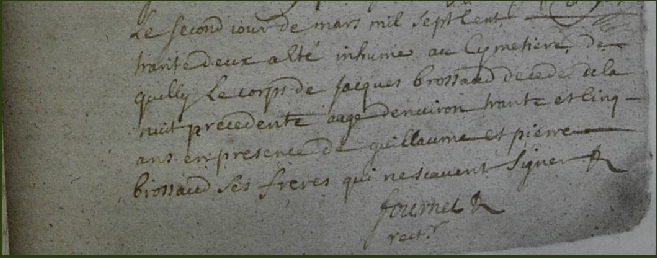 Le second iour de mars mil sept Cent
trante deux a esté inhumé au Cymetiere de
quilly Le corps de Jacques brossaud decedé de la
nuit precedente aagé denuiron trante et cinq
ans en presence de guillaume et pierre
brossaud ses freres qui ne scauent signer
fournel
rect.r